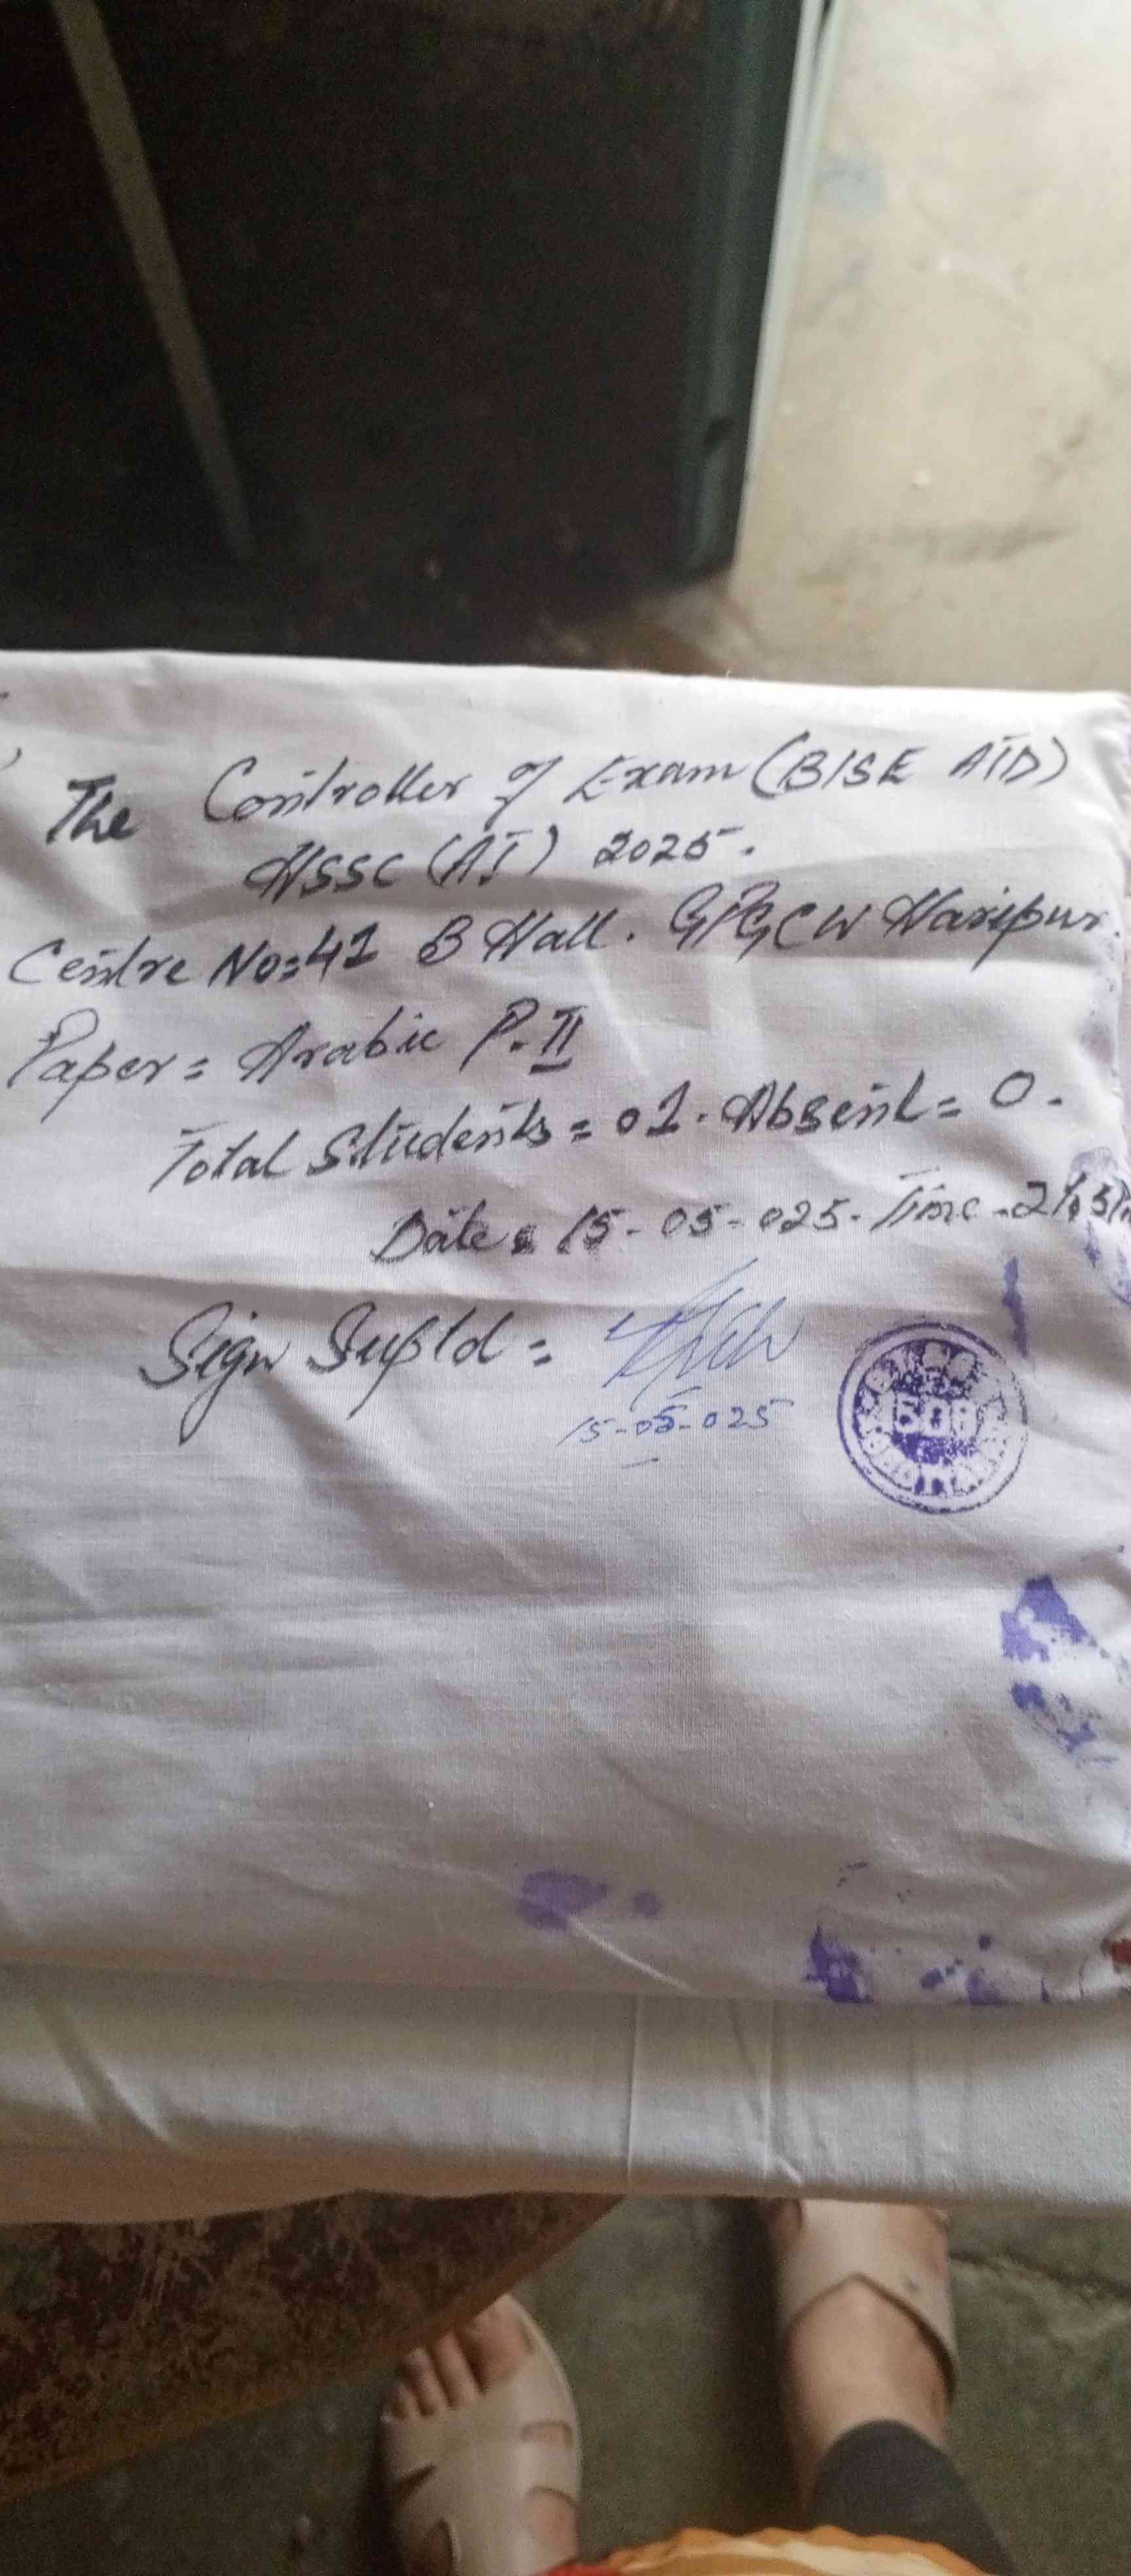 The Controller of Exam (BISE ATD)
HSSC (AI) 2025.
Centre No=41 B Hall. GPGCW Haripur.
Paper= Arabic P.II
Total Students = 01. Absent= 0.
Date= 15-05-025. Time
Sign Suptd =
15-05-025